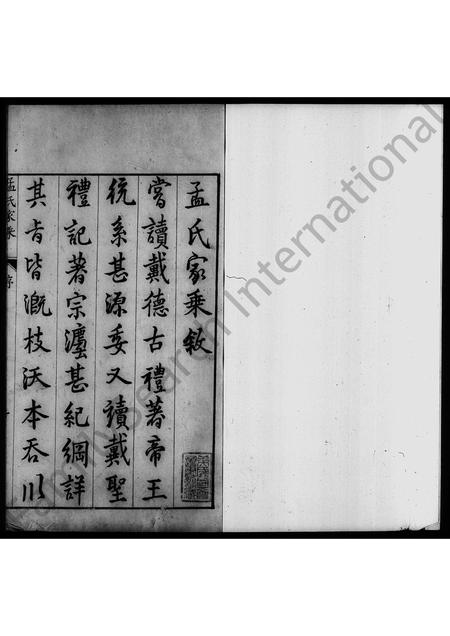 孟氏家乘敘
嘗讀戴德古禮著帝王
統系甚源委又讀戴聖
禮記著宗瀍甚紀綱詳
其旨皆溉枝沃本吞川
孟氏家乘
序
International